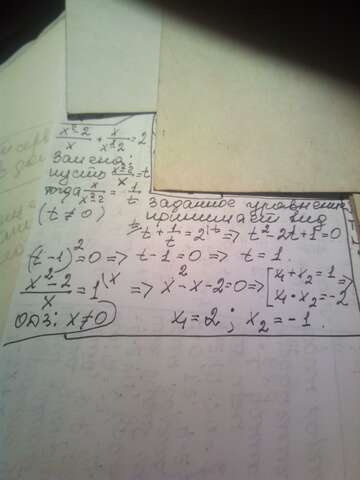 x²-2/x + x/x²-2 = 2
Замена:
пусть x²-2/x = t
тогда x/x²-2 = 1/t
(t ≠ 0)
Заданное уравнение
принимает вид
t + 1/t = 2 |·t => t²-2t+1=0
(t-1)²=0 => t-1=0 => t=1.
x²-2/x = 1 |·x => x²-x-2=0 => [x₁+x₂=1 =>
x₁·x₂=-2
ОДЗ: x≠0
x₁=2; x₂=-1.